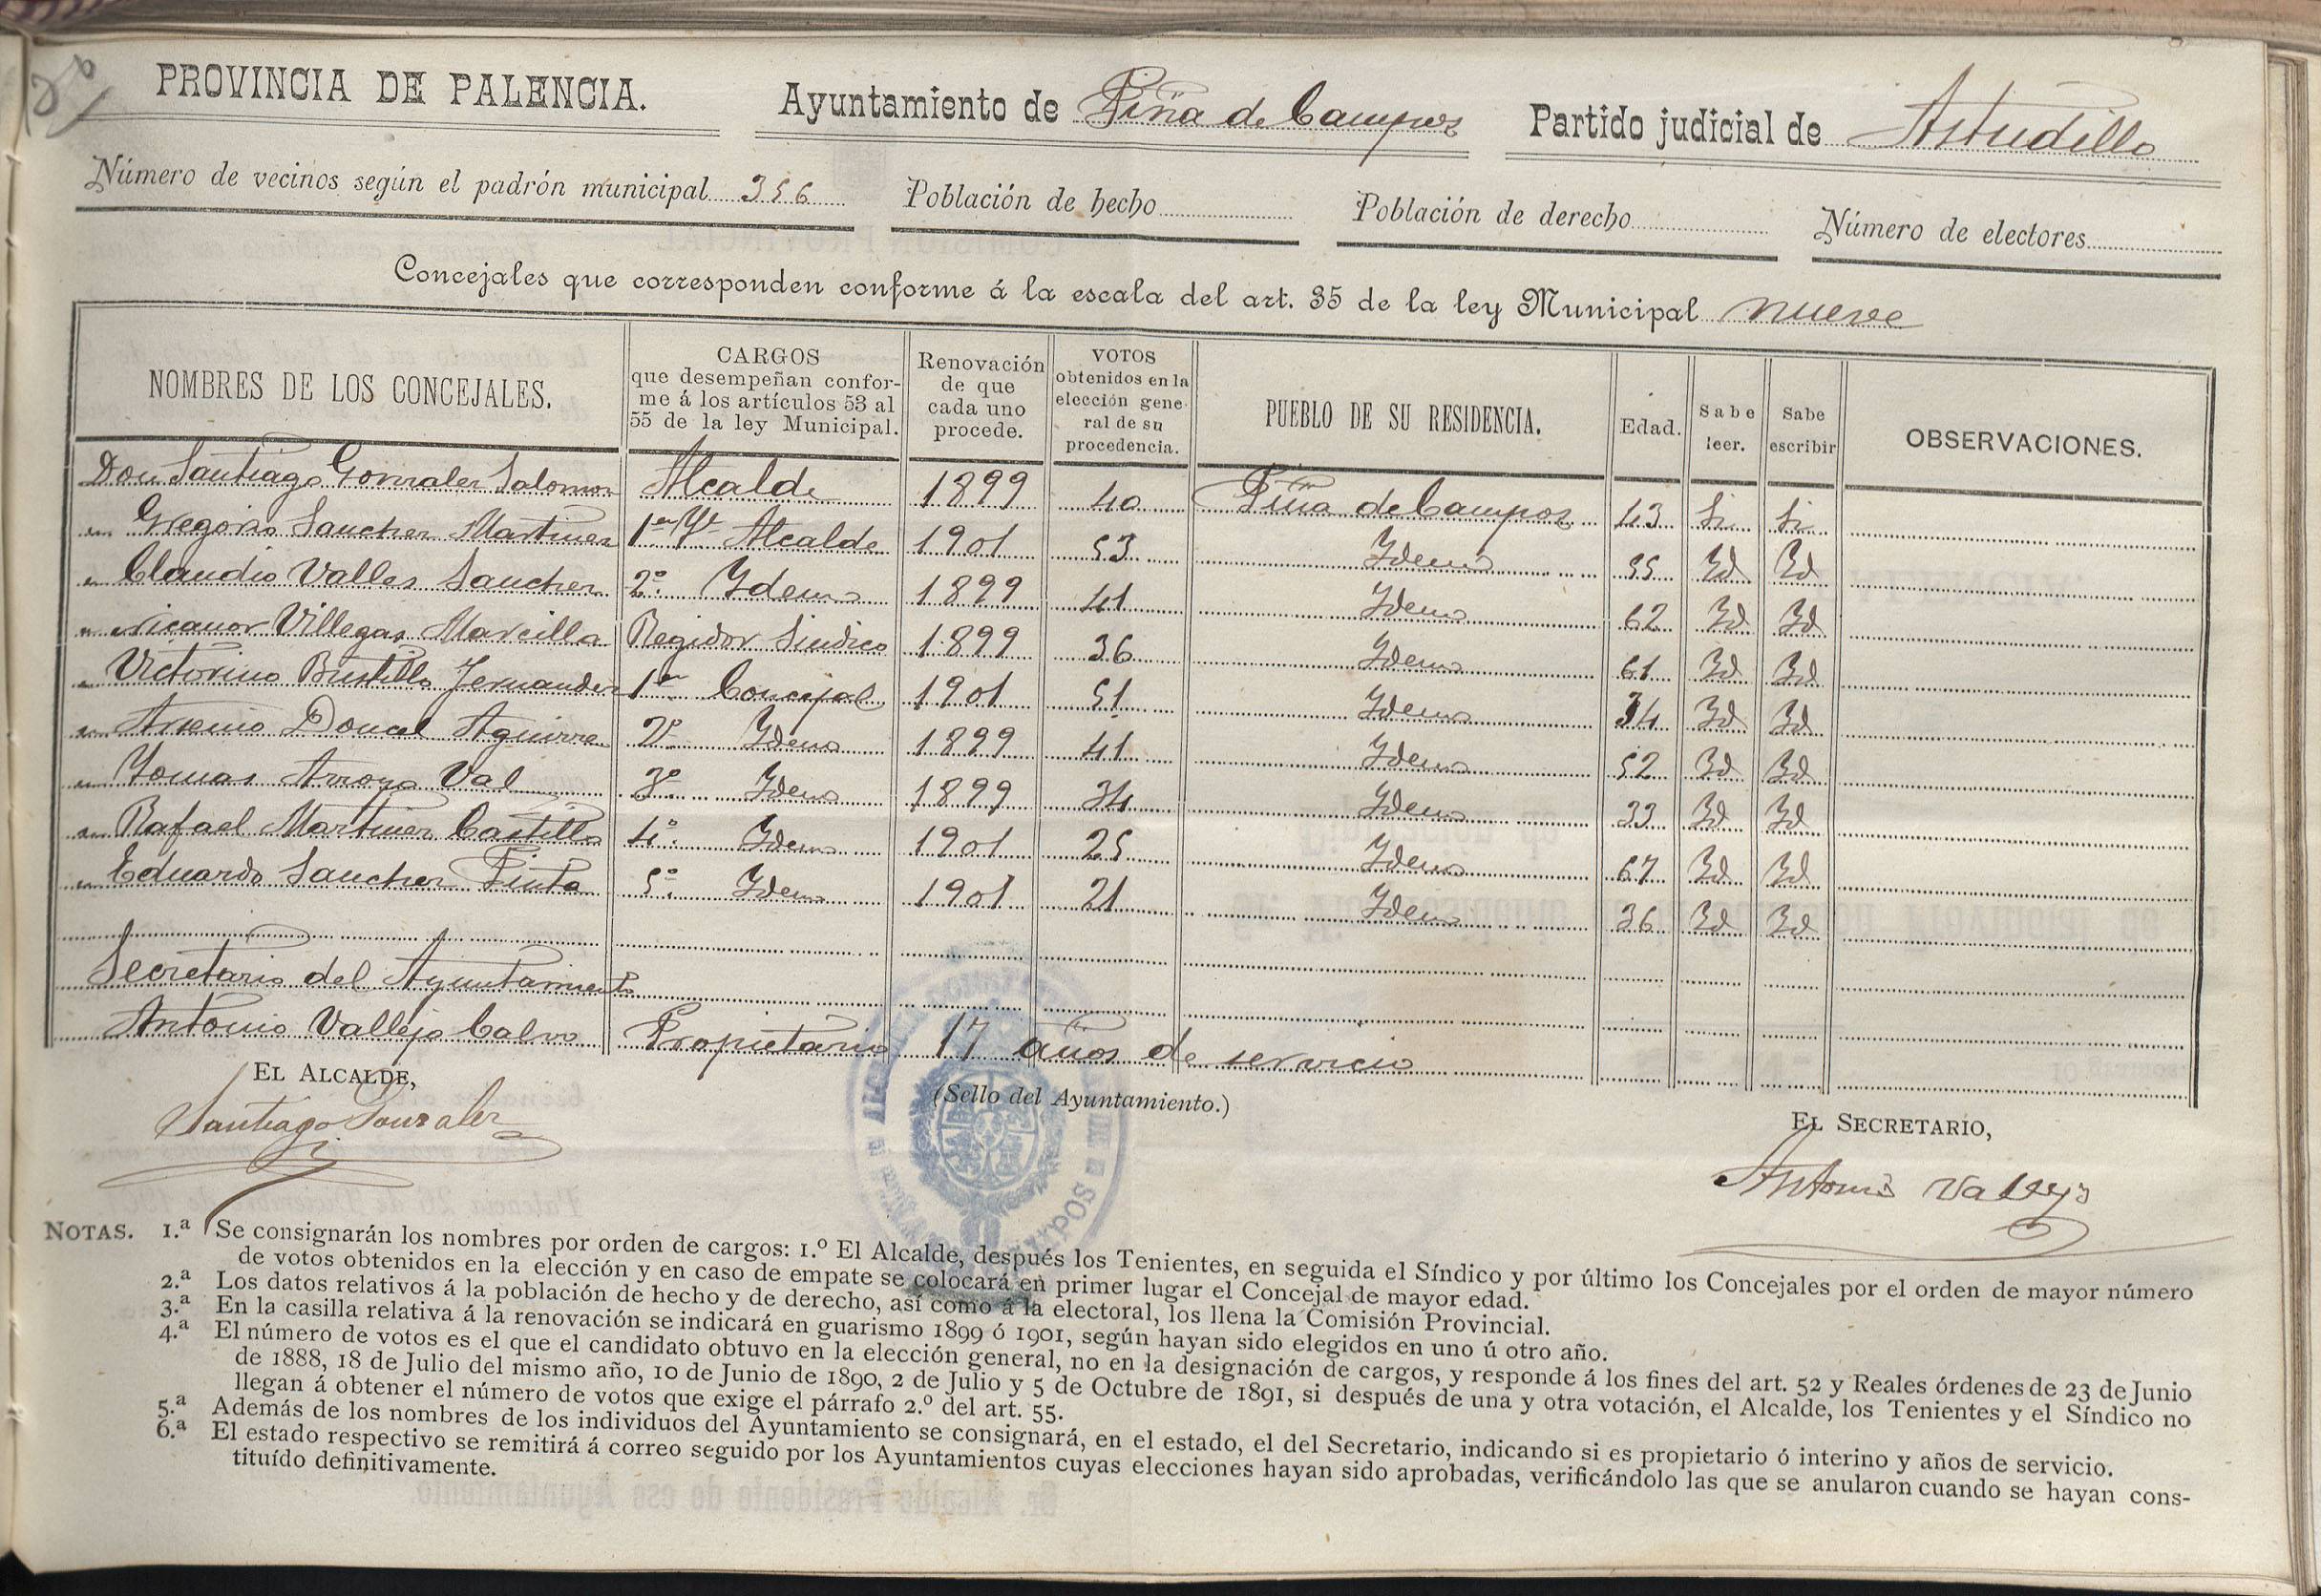 PROVINCIA DE PALENCIA. Ayuntamiento de Piña de Campos Partido judicial de Astudillo
Número de vecinos según el padrón municipal 356 Población de hecho Población de derecho Número de electores
Concejales que corresponden conforme á la escala del art. 35 de la ley Municipal nueve
NOMBRES DE LOS CONCEJALES. CARGOS que desempeñan confor-me á los artículos 53 al 55 de la ley Municipal. Renovación de que cada uno procede. VOTOS obtenidos en la elección gene-ral de su procedencia. PUEBLO DE SU RESIDENCIA. Edad. Sabe leer. Sabe escribir OBSERVACIONES.
Don Santiago Gonzalez Salomon Alcalde 1899 40 Piña de Campos 43 Si Si
" Gregorio Sanchez Martinez 1er Te Alcalde 1901 53 Idem 55 Id Id
" Claudio Valles Sanchez 2º Idem 1899 41 Idem 62 Id Id
" Nicanor Villegas Marcilla Regidor Sindico 1899 36 Idem 61 Id Id
" Victorino Bustillo Fernandez 1er Concejal 1901 51 Idem 34 Id Id
" Arsenio Doucel Aguirre 2º Idem 1899 41 Idem 52 Id Id
" Tomas Arroyo Val 3º Idem 1899 34 Idem 33 Id Id
" Rafael Martinez Castillo 4º Idem 1901 25 Idem 67 Id Id
" Eduardo Sanchez Pinta 5º Idem 1901 21 Idem 36 Id Id
Secretario del Ayuntamiento
Antonio Vallejo Calvo Propietario 17 años de servicio
EL ALCALDE, (Sello del Ayuntamiento.) EL SECRETARIO,
Santiago Gonzalez Antonio Vallejo
NOTAS. 1.ª Se consignarán los nombres por orden de cargos: 1.º El Alcalde, después los Tenientes, en seguida el Síndico y por último los Concejales por el orden de mayor número
de votos obtenidos en la elección y en caso de empate se colocará en primer lugar el Concejal de mayor edad.
2.ª Los datos relativos á la población de hecho y de derecho, así como á la electoral, los llena la Comisión Provincial.
3.ª En la casilla relativa á la renovación se indicará en guarismo 1899 ó 1901, según hayan sido elegidos en uno ú otro año.
4.ª El número de votos es el que el candidato obtuvo en la elección general, no en la designación de cargos, y responde á los fines del art. 52 y Reales órdenes de 23 de Junio
de 1888, 18 de Julio del mismo año, 10 de Junio de 1890, 2 de Julio y 5 de Octubre de 1891, si después de una y otra votación, el Alcalde, los Tenientes y el Síndico no
llegan á obtener el número de votos que exige el párrafo 2.º del art. 55.
5.ª Además de los nombres de los individuos del Ayuntamiento se consignará, en el estado, el del Secretario, indicando si es propietario ó interino y años de servicio.
6.ª El estado respectivo se remitirá á correo seguido por los Ayuntamientos cuyas elecciones hayan sido aprobadas, verificándolo las que se anularon cuando se hayan cons-
tituído definitivamente.